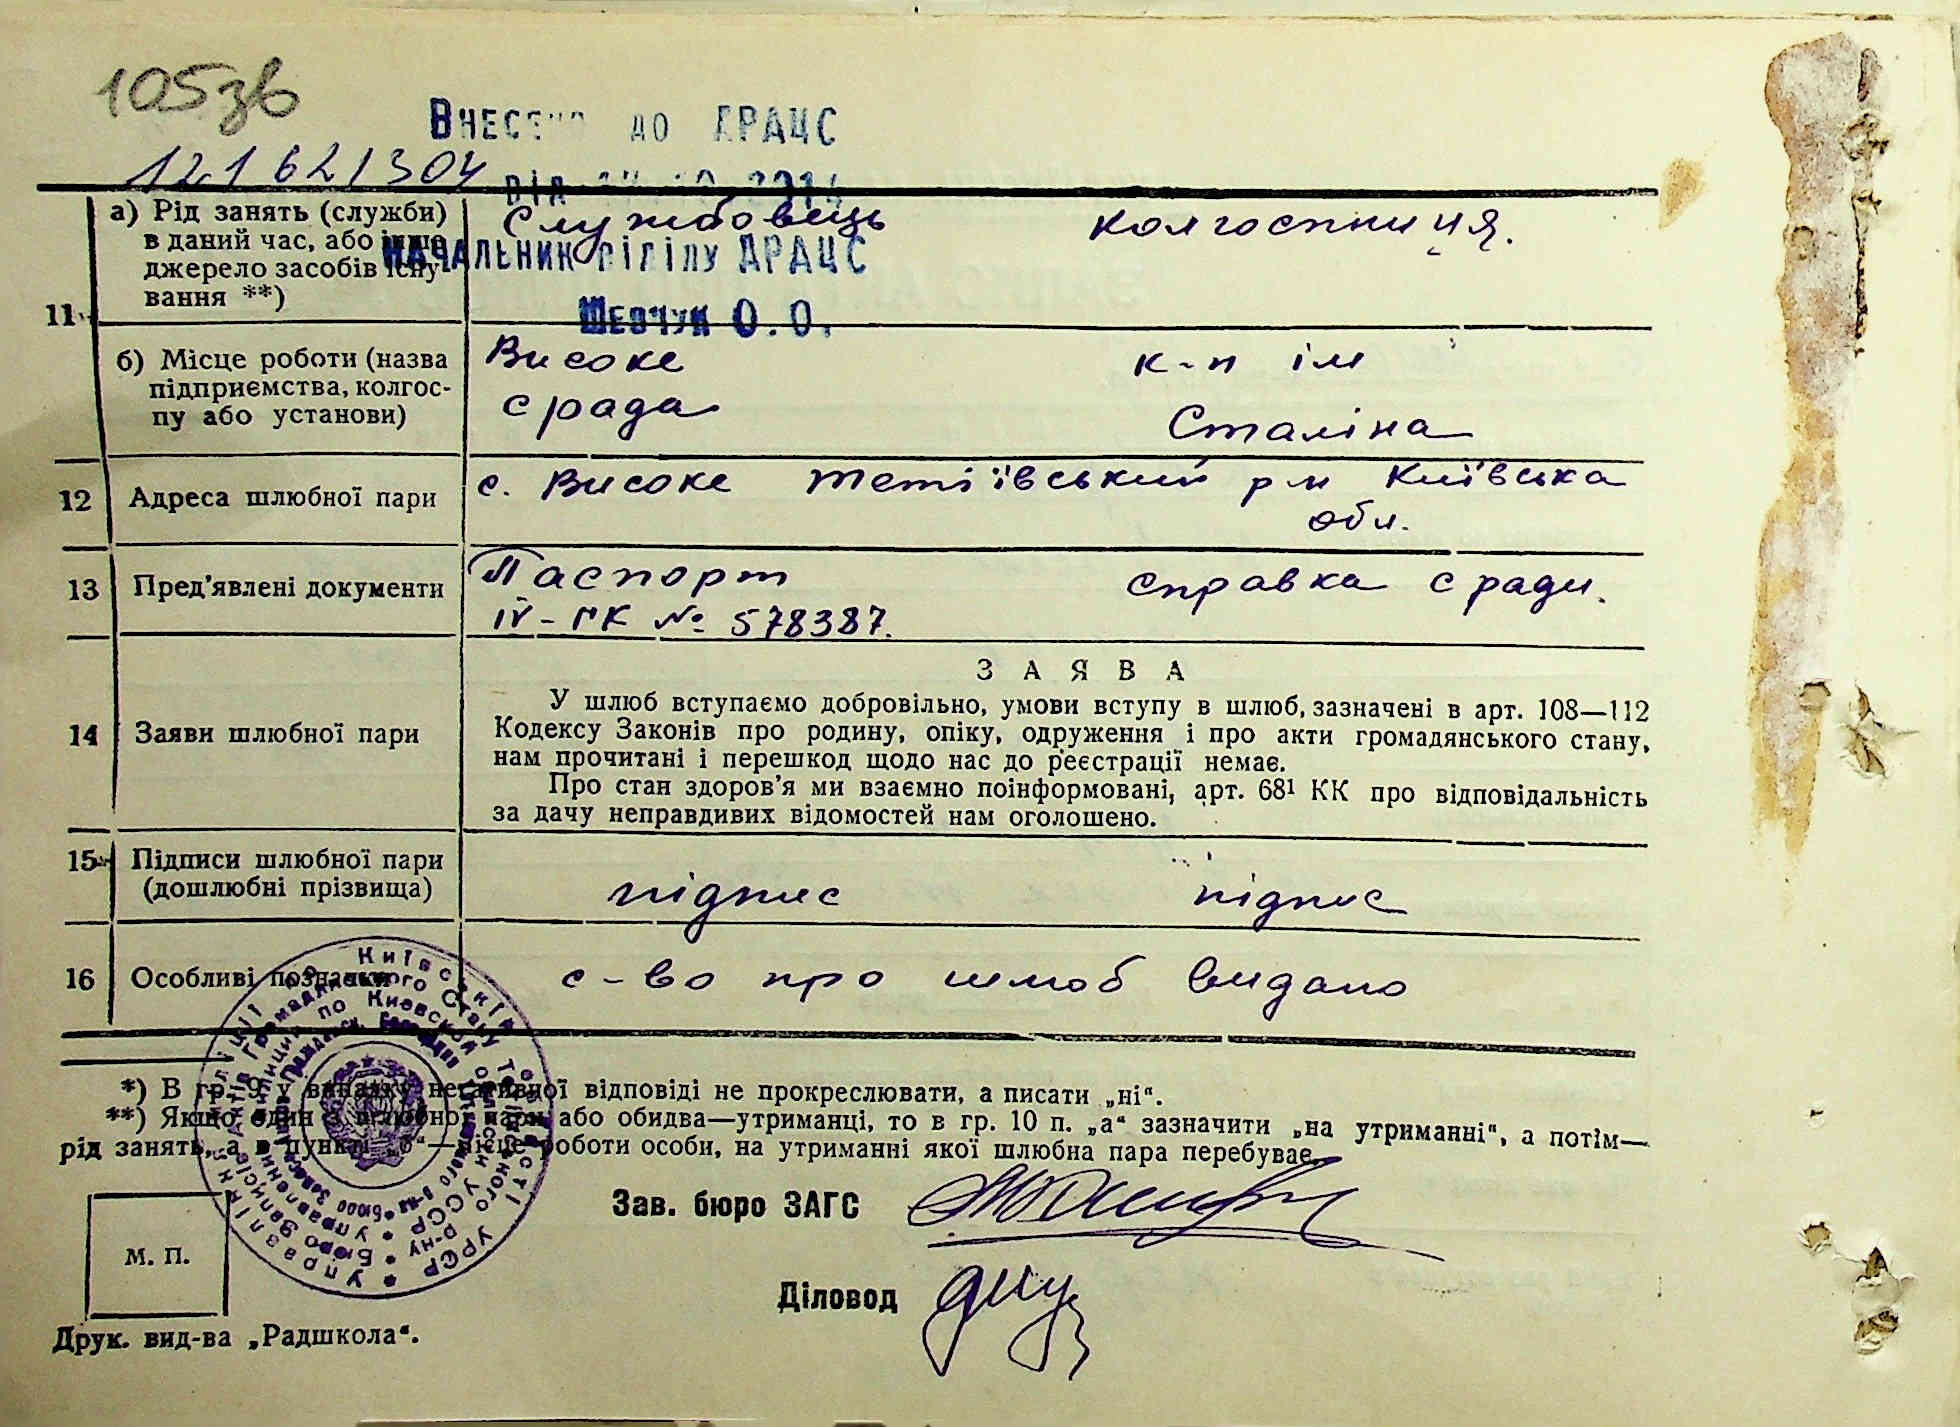 105зв
121621304
Внесено до ДРАЦС
від
Начальник відділу ДРАЦС
Шевчук О.О.
11 а) Рід занять (служби)
в даний час, або інше
джерело засобів існу-
вання **)
Службовець колгоспниця.
б) Місце роботи (назва
підприємства, колгос-
пу або установи)
Високе к-п ім
с рада Сталіна
12 Адреса шлюбної пари с. Високе Тетіївський р-н Київська
обл.
13 Пред'явлені документи Паспорт справка с ради.
IV-ПК № 578387.
14 Заяви шлюбної пари
ЗАЯВА
У шлюб вступаємо добровільно, умови вступу в шлюб, зазначені в арт. 108—112
Кодексу Законів про родину, опіку, одруження і про акти громадянського стану,
нам прочитані і перешкод щодо нас до реєстрації немає.
Про стан здоров'я ми взаємно поінформовані, арт. 68¹ КК про відповідальність
за дачу неправдивих відомостей нам оголошено.
15 Підписи шлюбної пари
(дошлюбні прізвища)
підпис підпис
16 Особливі позначки с-во про шлюб видано
*) В гр. 9 у випадку негативної відповіді не прокреслювати, а писати „ні“.
**) Якщо один з шлюбної пари або обидва—утриманці, то в гр. 10 п. „а“ зазначити „на утриманні“, а потім—
рід занять, а в пункті „б“—місце роботи особи, на утриманні якої шлюбна пара перебуває.
Зав. бюро ЗАГС
М. П.
Діловод
Друк. вид-ва „Радшкола“.